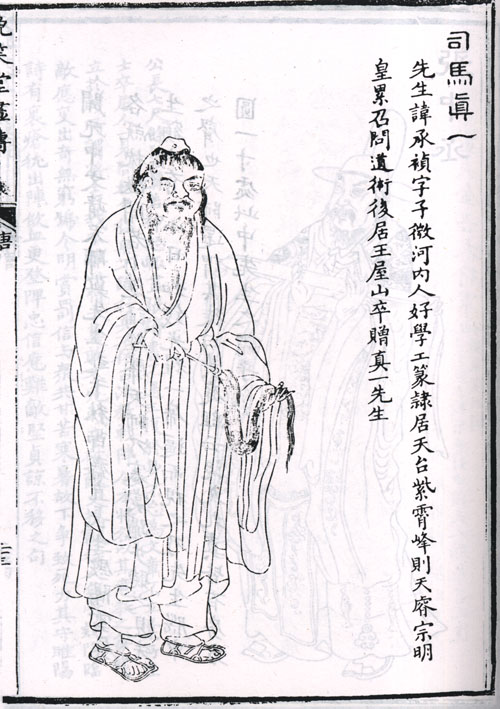 司馬眞一
先生諱承禎字子微河内人好學工篆隸居天台紫霄峰則天睿宗明
皇累召問道術後居王屋山卒贈真一先生
笑堂畫傳
唐